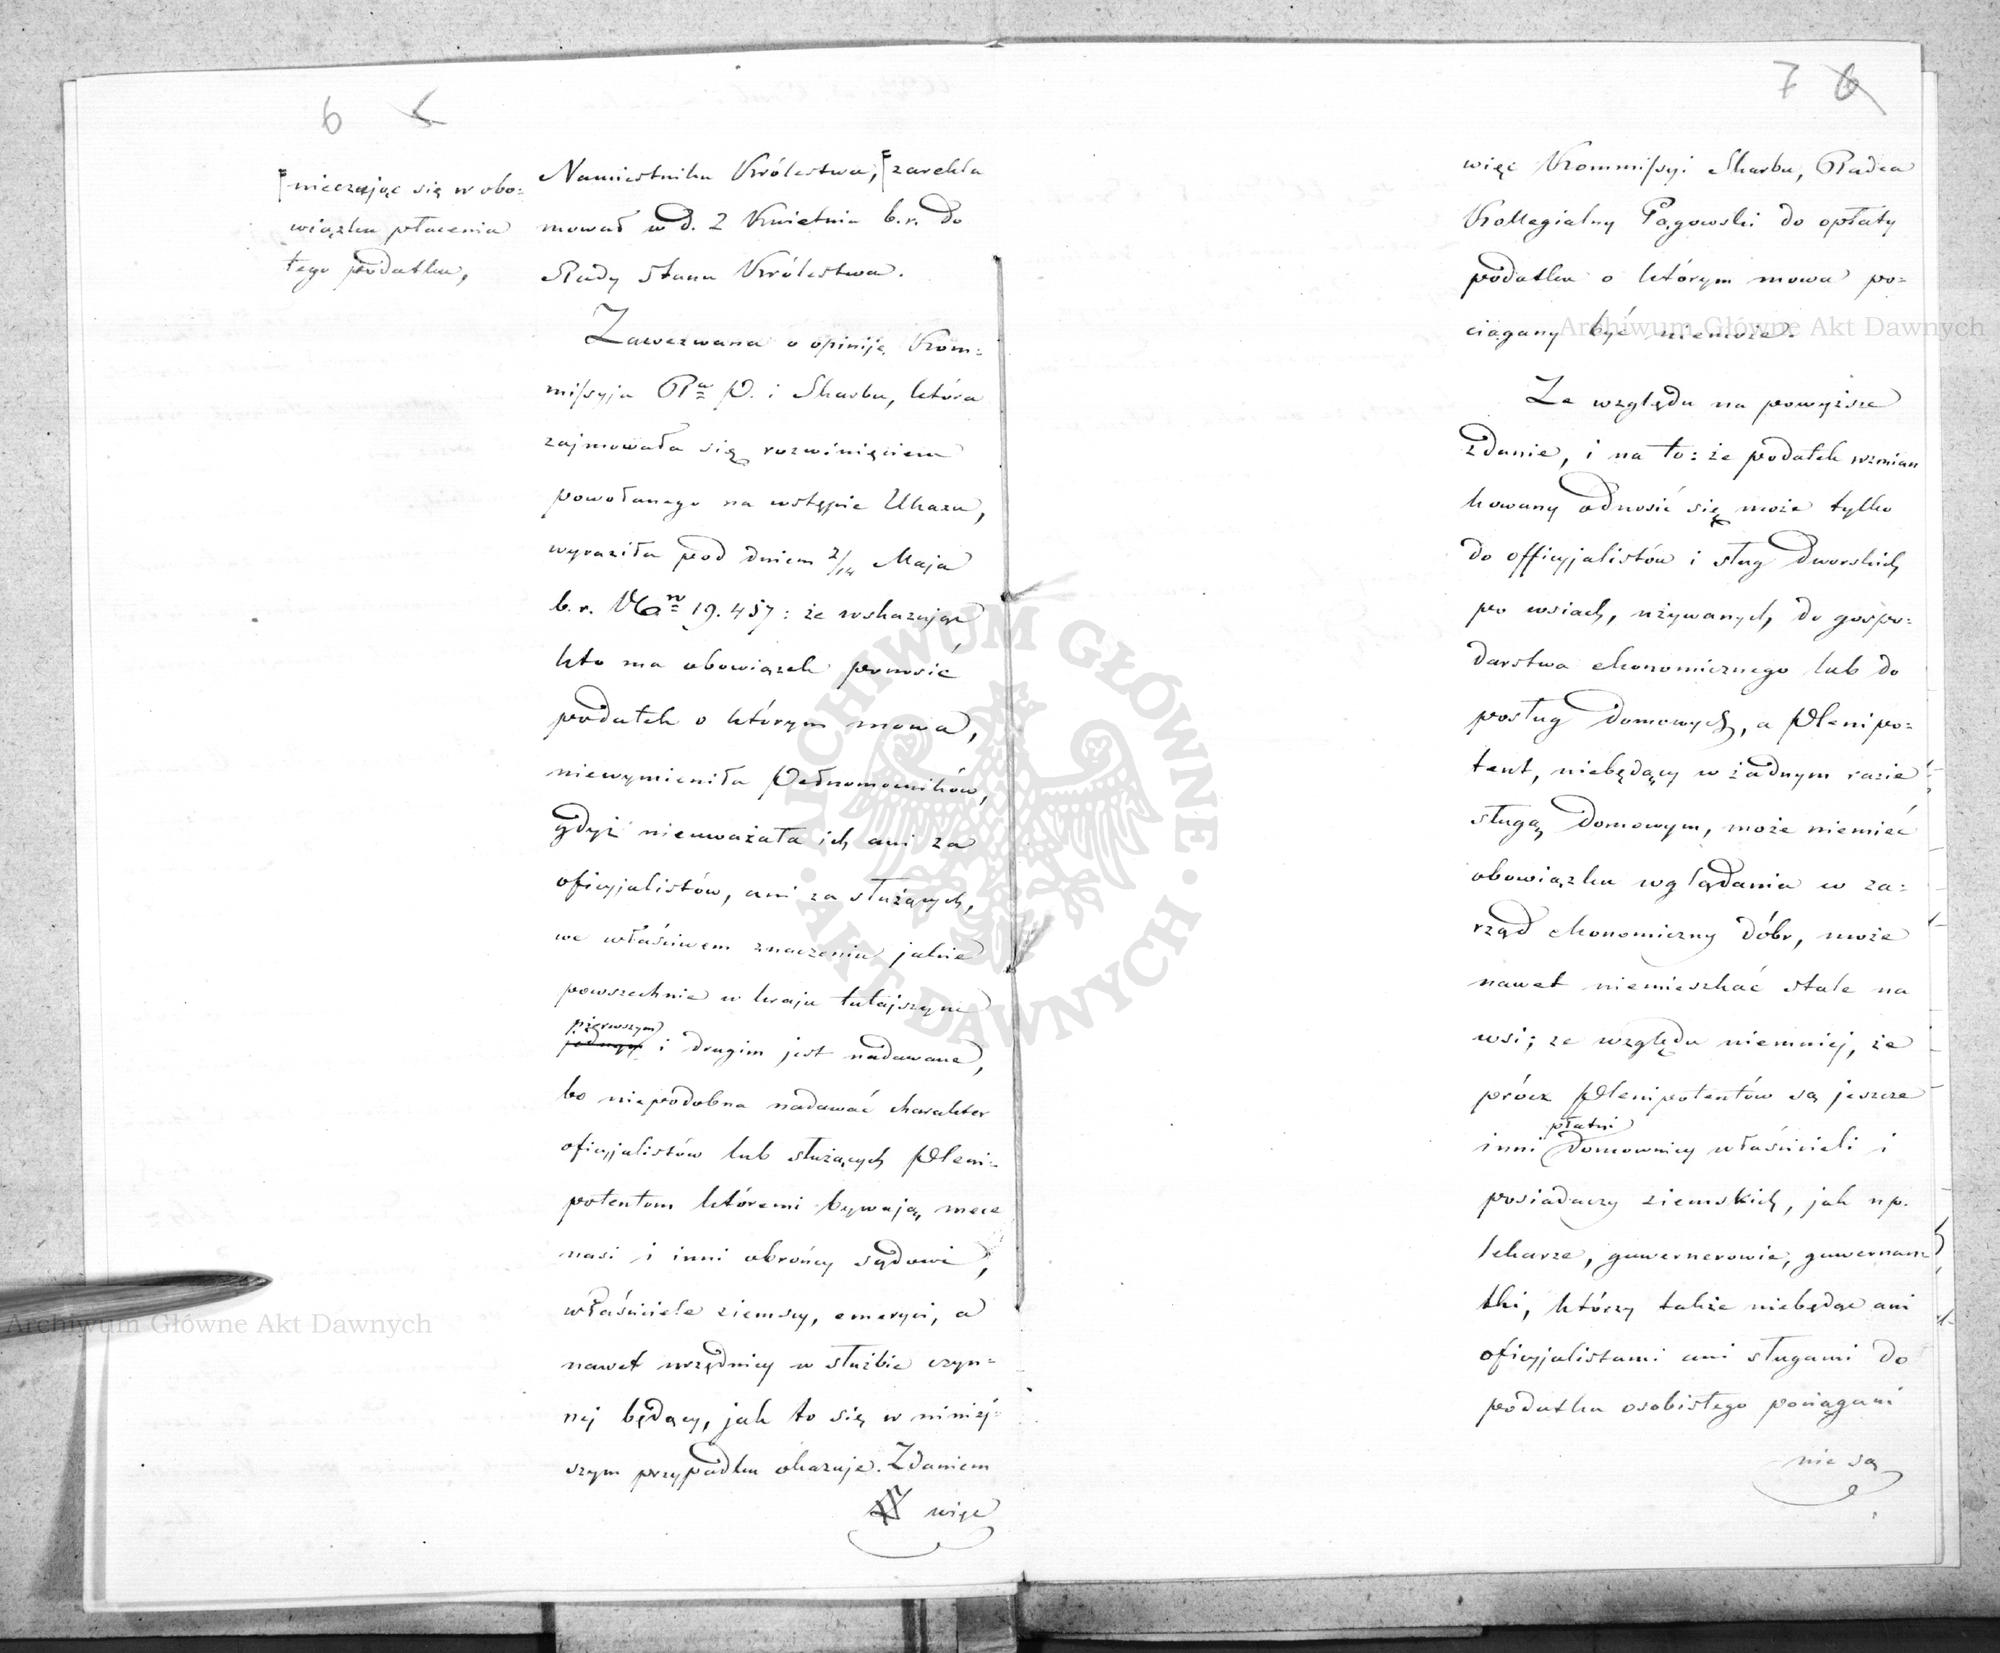 6
nieczując się w obo=
wiązku płacenia
tego podatku,
Namiestnika Królestwa, zarekla
mował w d. 2 Kwietnia b.r. do
Rady Stanu Królestwa.
Zawezwana o opiniję Kom=
missyja Ra P. i Skarbu, która
zajmowała się rozwinięciem
powołanego na wstępie Ukazu,
wyraziła pod dniem 2/14 Maja
b.r. 19.457: że wskazując
kto ma obowiązek ponosić
podatek o którym mowa,
niewymieniła Pełnomocników,
gdyż nieuważała ich ani za
oficyjalistów, ani za służących,
we właściwem znaczeniu jakie
powszechnie w kraju tutajszym
pierwszym
i drugim jest nadawane,
bo niepodobna nadawać charakter
oficyjalistów lub służących Pleni=
potentom któremi bywają mece
nasi i inni obrońcy sądowi,
właściciele ziemscy, emeryci, a
nawet urzędnicy w służbie czyn=
nej będący, jak to się w niniej=
szym przypadku okazuje. Zdaniem
więc
7 6
więc Kommissyi Skarbu, Radca
Kollegialny Pągowski do opłaty
podatku o którym mowa po=
ciągany być niemoże.
Ze względu na powyższe
zdanie, i na to: że podatek wzmian
kowany odnosić się może tylko
do officyjalistów i sług dworskich
po wsiach, używanych do gospo=
darstwa ekonomicznego lub do
posług domowych, a Plenipo=
tent, niebędący w żadnym razie
sługą domowym, może niemieć
obowiązku wglądania w za=
rząd ekonomiczny dóbr, może
nawet niemieszkać stale na
wsi; ze względu niemniej, że
prócz Plenipotentów są jeszcze
płatni
inni domownicy właścicieli i
posiadaczy ziemskich, jak np.
lekarze, guwernerowie, guwernant
tki, którzy także niebędąc ani
oficyjalistami ani sługami do
podatku osobistego pociągani
nie są
Archiwum Główne Akt Dawnych
Archiwum Główne Akt Dawnych
ARCHIWUM GŁÓWNE · AKT DAWNYCH ·